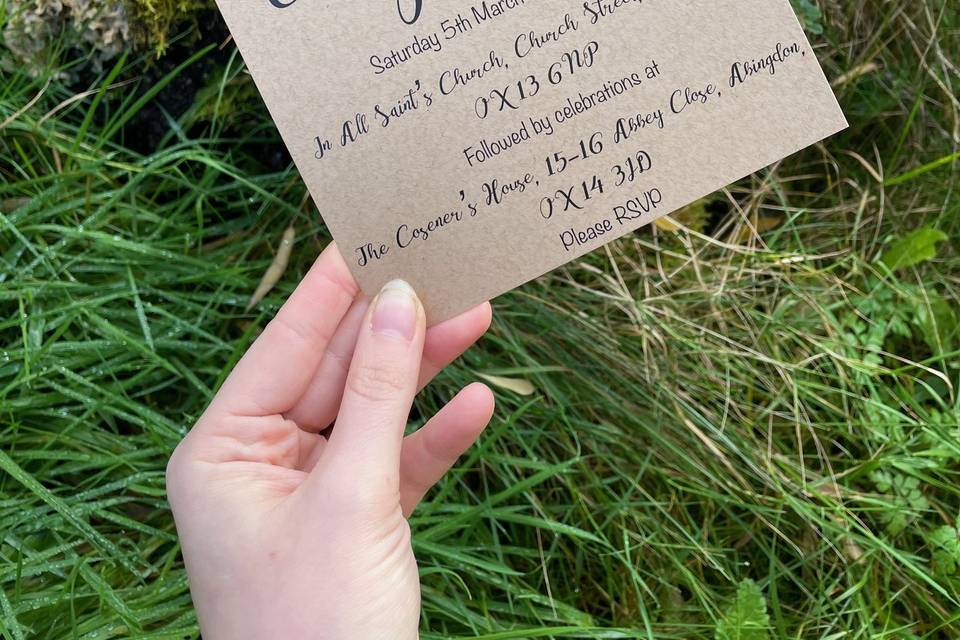 Saturday 5th March
In All Saint's Church, Church Street,
OX13 6NP
Followed by celebrations at
The Cosener's House, 15-16 Abbey Close, Abingdon,
OX14 3JD
Please RSVP